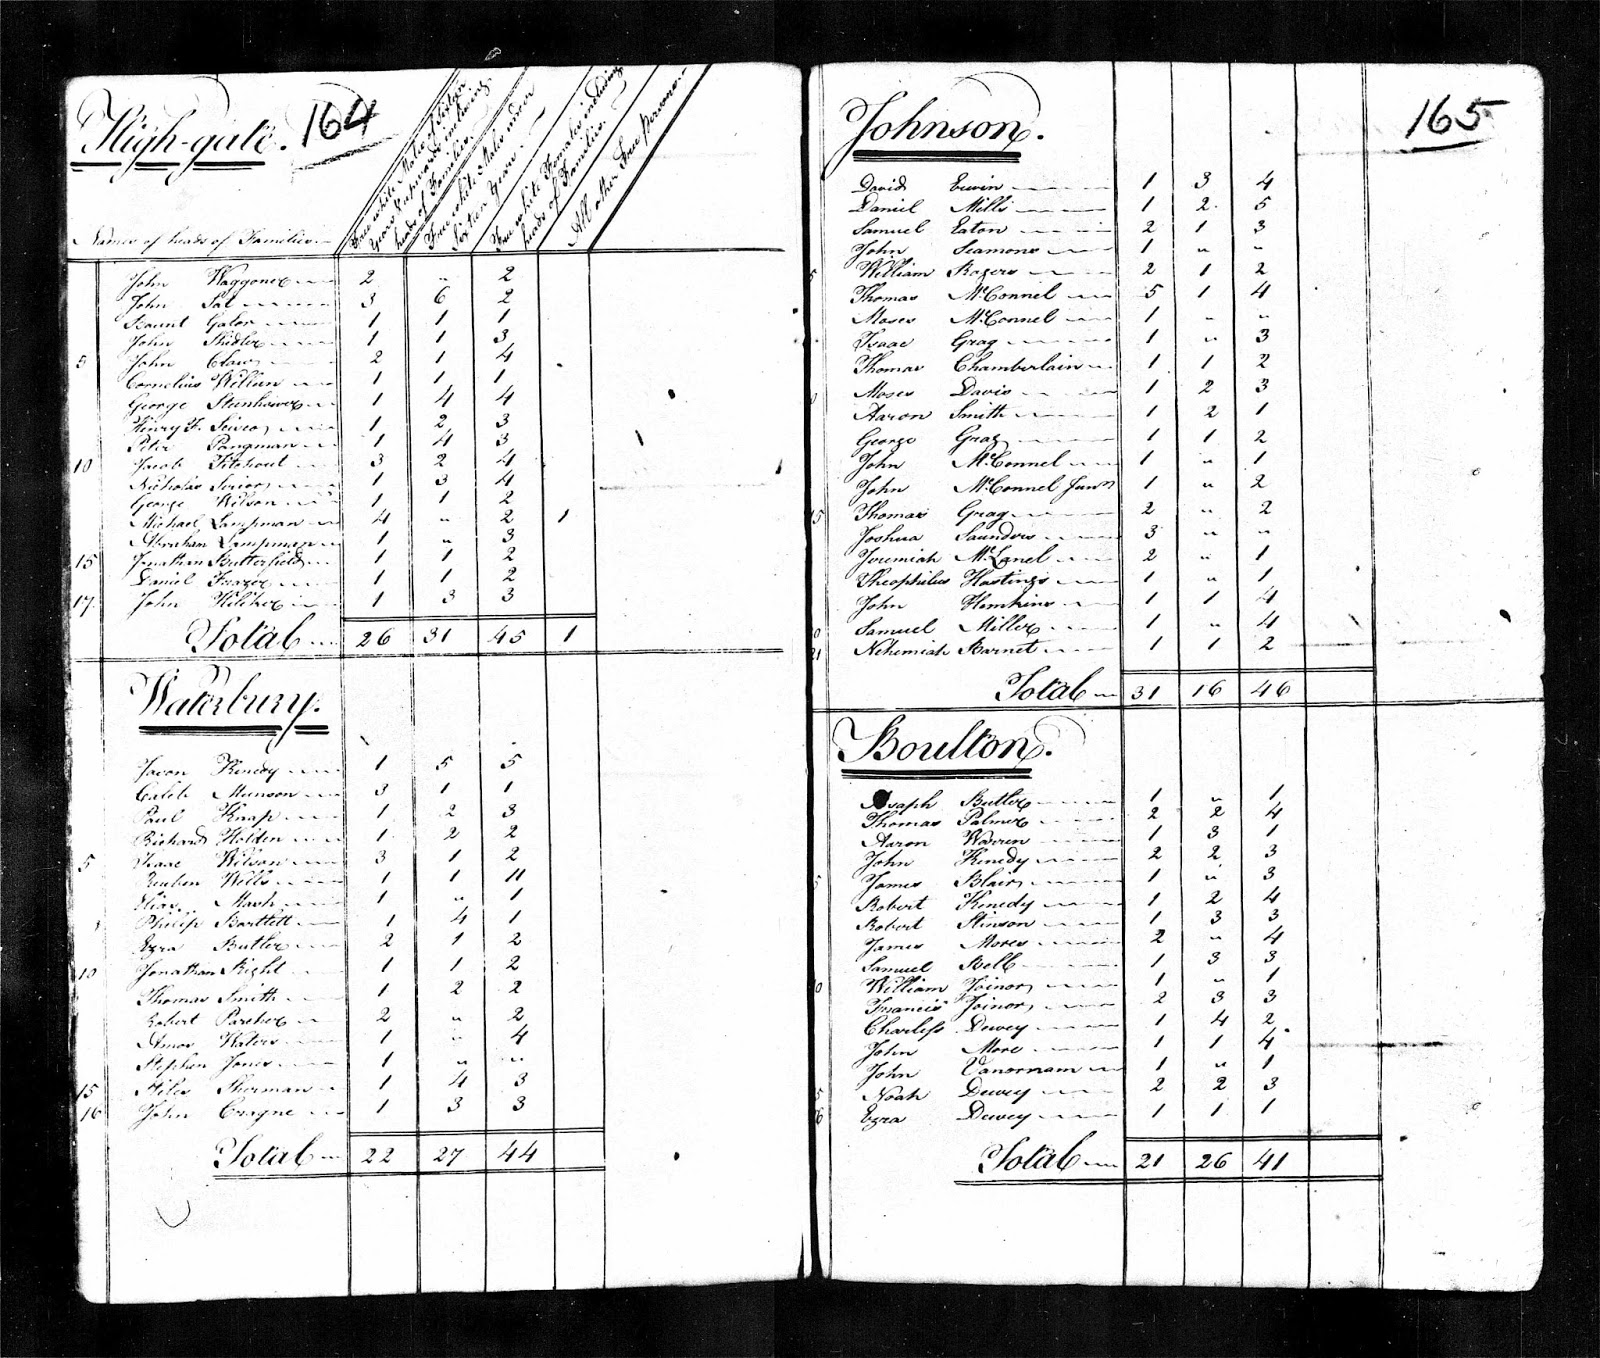 High-gate. 164
Free white Males of Sixteen Years & upwards including heads of Families.
Free white Males under Sixteen Years.
Free white Females including heads of Families.
All other Free persons
Names of heads of Families
John Waggoner 2 " 2
John Sal 3 6 2
Gator 1 1 1
John 1 1 3
5 John Claw 2 1 4
Cornelius Willsen 1 1 1
George Stenhover 1 4 4
Henry F. 1 2 3
Peter Pangman 1 4 3
10 Jacob 3 2 4
Nicholas 1 3 4
George Wilson 1 1 2
Michael Lampman 4 " 2 1
Abraham Lampman 1 " 3
15 Jonathan Butterfield 1 1 2
Daniel Frazer 1 1 2
17 John Hiliker 1 3 3
Total 26 31 45 1
Waterbury.
Jason Kenedy 1 5 5
Caleb Munson 3 1 1
Paul Knap 1 2 3
Richard Holden 1 2 2
5 Isaac Wilson 3 1 2
Reuben Wells 1 1 11
Elias Mash 1 " 1
Philip Bartlett 1 4 1
Ezra Butler 2 1 2
10 Jonathan Right 1 1 2
Thomas Smith 1 2 2
Robert Parcher 2 " 2
Amos Waters 1 " 4
Stephen Jones 1 " "
15 Stiles Sherman 1 4 3
16 John Cragne 1 3 3
Total 22 27 44
Johnson. 165
David Erwin 1 3 4
Daniel Mills 1 2 5
Samuel Eaton 2 1 3
John Seamons 1 " "
5 William Rogers 2 1 2
Thomas McConnel 5 1 4
Moses McConnel 1 " "
Isaac Grag 1 " 3
Thomas Chamberlain 1 1 2
0 Moses Davis 1 2 3
Aaron Smith 1 2 1
George Grag 1 1 2
John McConnel 1 " 1
John McConnel Junr 1 " 2
15 Thomas Grag 2 " 2
Joshua Saunders 3 " "
Jeremiah McLanel 2 " 1
Theophilus Hastings 1 " 1
John Hemkins 1 1 4
0 Samuel Miller 1 " 4
21 Nehemiah Barnet 1 1 2
Total 31 16 46
Boulton.
Asaph Butler 1 " 1
Thomas Palmer 2 2 4
Aaron Warren 1 3 1
John Kenedy 2 2 3
5 James Blair 1 " 3
Robert Kenedy 1 2 4
Robert Stinson 1 3 3
James Mores 2 " 4
Samuel Bell 1 3 3
0 William Joinor 1 " 1
Francis Joinor 2 3 3
Charles Dewey 1 4 2
John More 1 1 4
John Vanornam 1 " 1
5 Noah Dewey 2 2 3
6 Ezra Dewey 1 1 1
Total 21 26 41